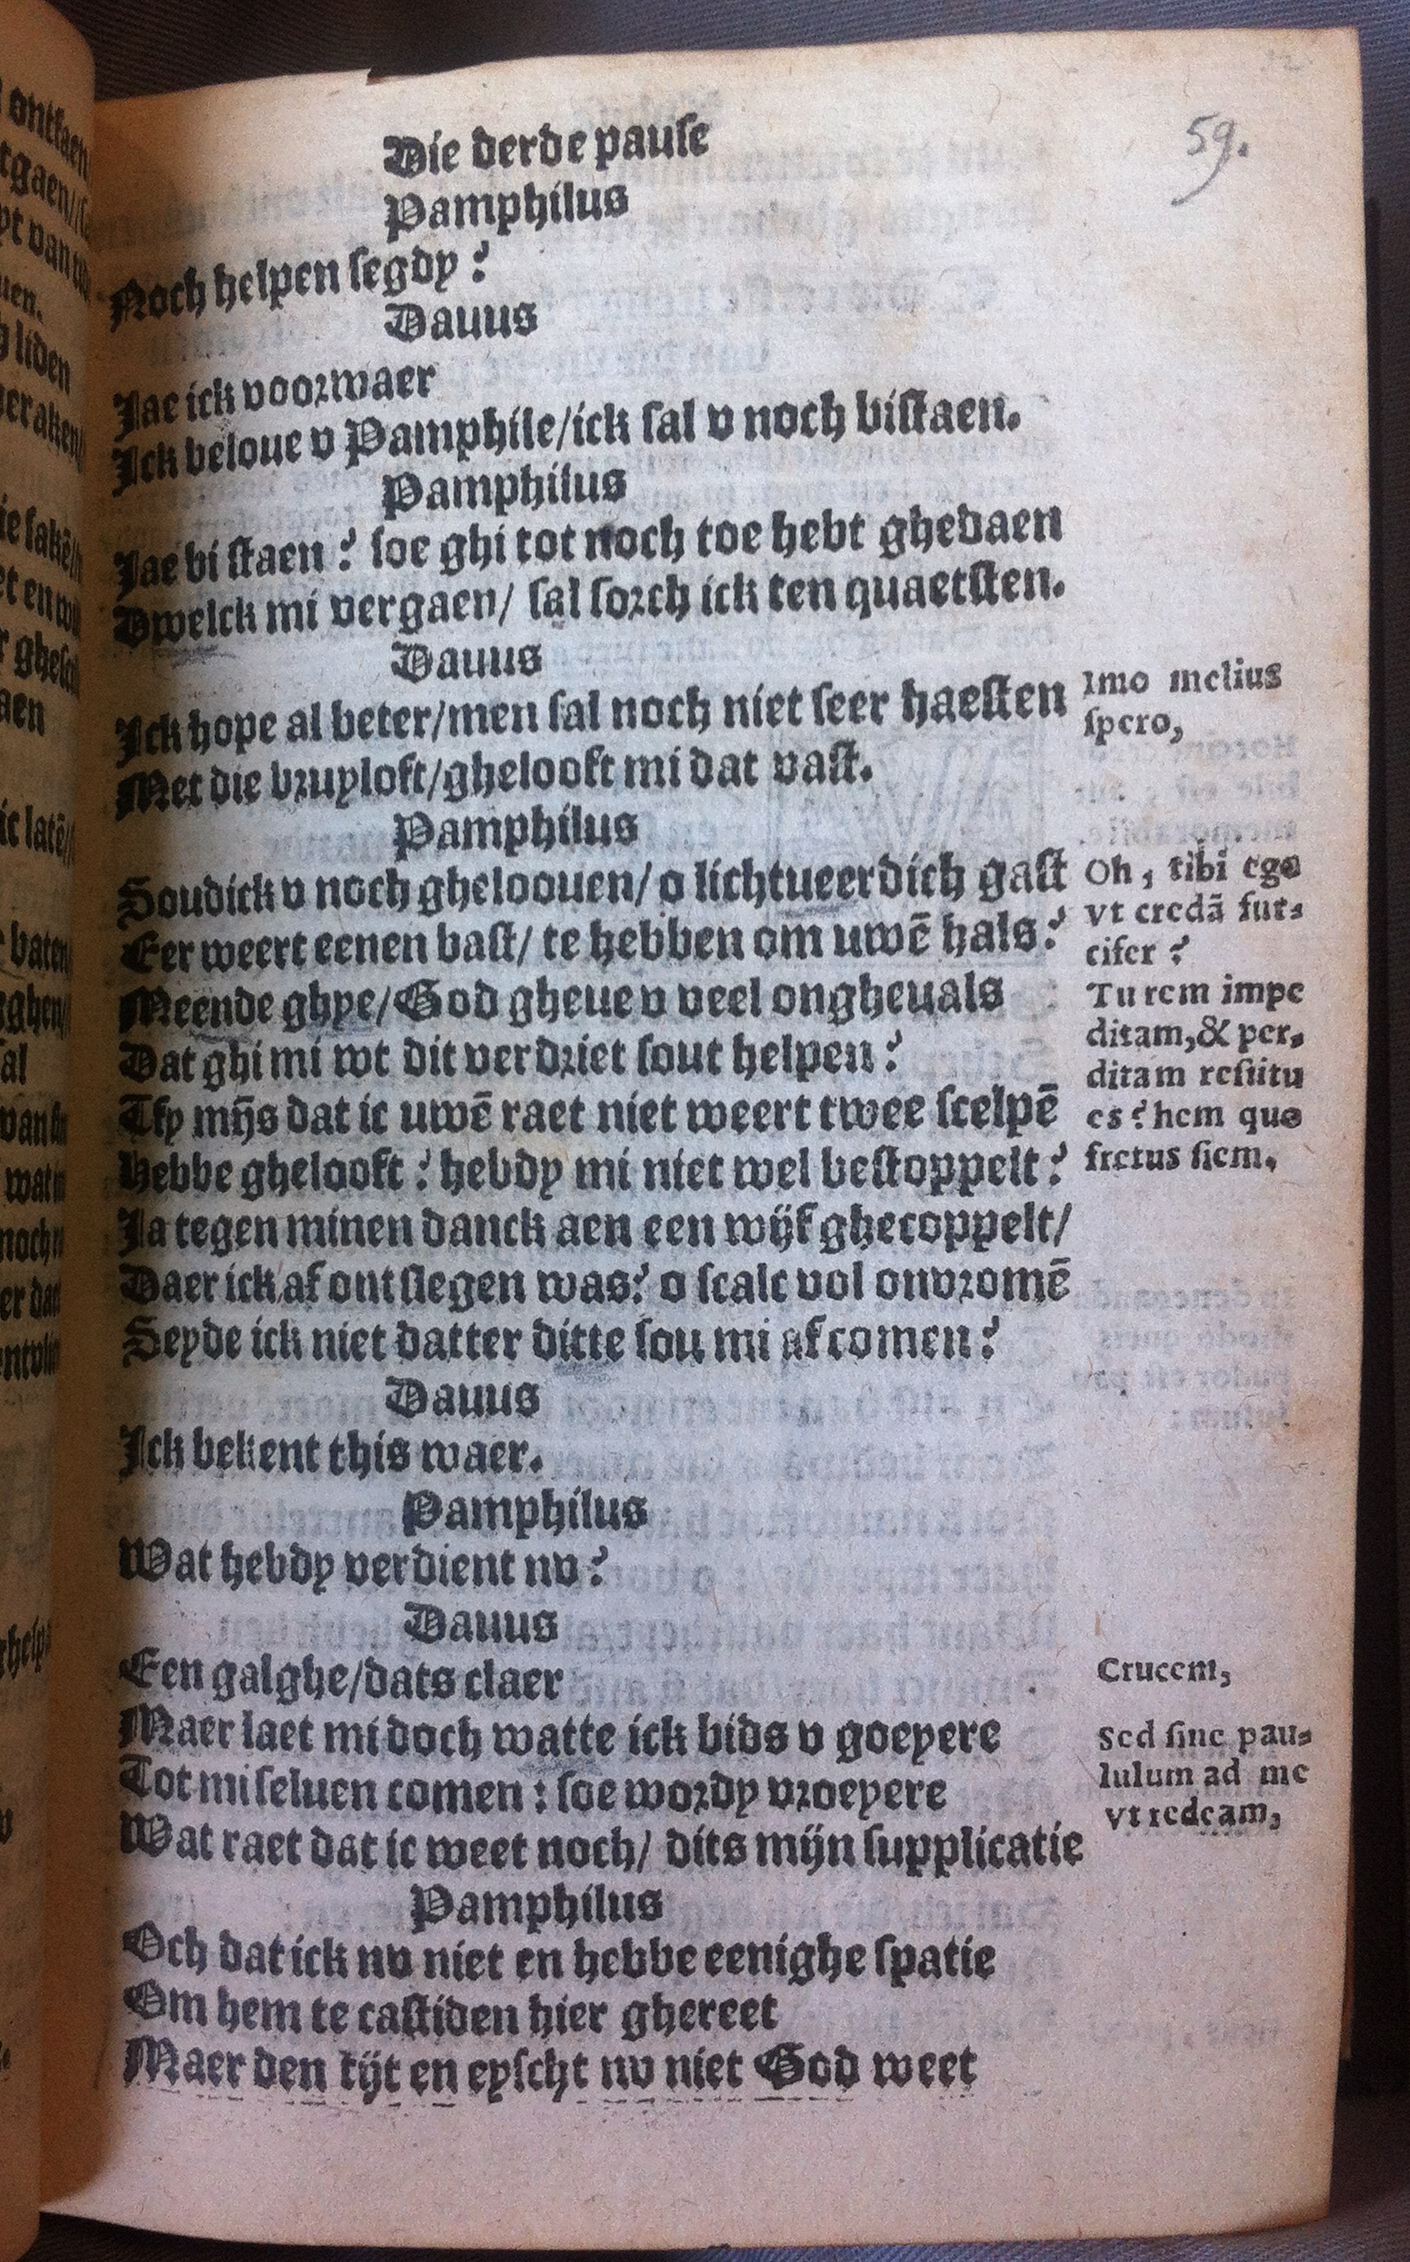 59.
Die derde pause
Pamphilus
Noch helpen segdy?
Dauus
Jae ick voorwaer
Ick beloue v Pamphile/ick sal v noch bistaen.
Pamphilus
Jae bi staen? soe ghi tot noch toe hebt ghedaen
Dwelck mi vergaen/ sal sorch ick ten quaetsten.
Dauus
Ick hope al beter/men sal noch niet seer haesten
Imo melius
spero,
Met die bruyloft/ghelooft mi dat vast.
Pamphilus
Soudick v noch gheloouen/o lichtueerdich gast
Eer weert eenen bast/ te hebben om uwē hals?
Oh, tibi ego
vt credā fur-
cifer?
Meende ghye/God gheue v veel ongheuals
Dat ghi mi wt dit verdriet sout helpen?
Tsy mijs dat ic uwē raet niet weert twee scelpē
Hebbe ghelooft? hebdy mi niet wel bestoppelt?
Tu rem impe
ditam,& per-
ditam restitu
es? hem quo
fretus siem,
Ja tegen minen danck aen een wijf ghecoppelt/
Daer ick af ontslegen was? o scalc vol onvromē
Seyde ick niet datter ditte sou mi af comen?
Dauus
Ick bekent this waer.
Pamphilus
Wat hebdy verdient nv?
Dauus
Een galghe/dats claer
Crucem,
Maer laet mi doch watte ick bids v goeyere
Tot mi seluen comen: soe wordy vroeyere
Wat raet dat ic weet noch/ dits mijn supplicatie
Sed sine pau-
lulum ad me
vt redeam,
Pamphilus
Och dat ick nv niet en hebbe eenighe spatie
Om hem te castiden hier ghereet
Maer den tijt en eyscht nv niet God weet